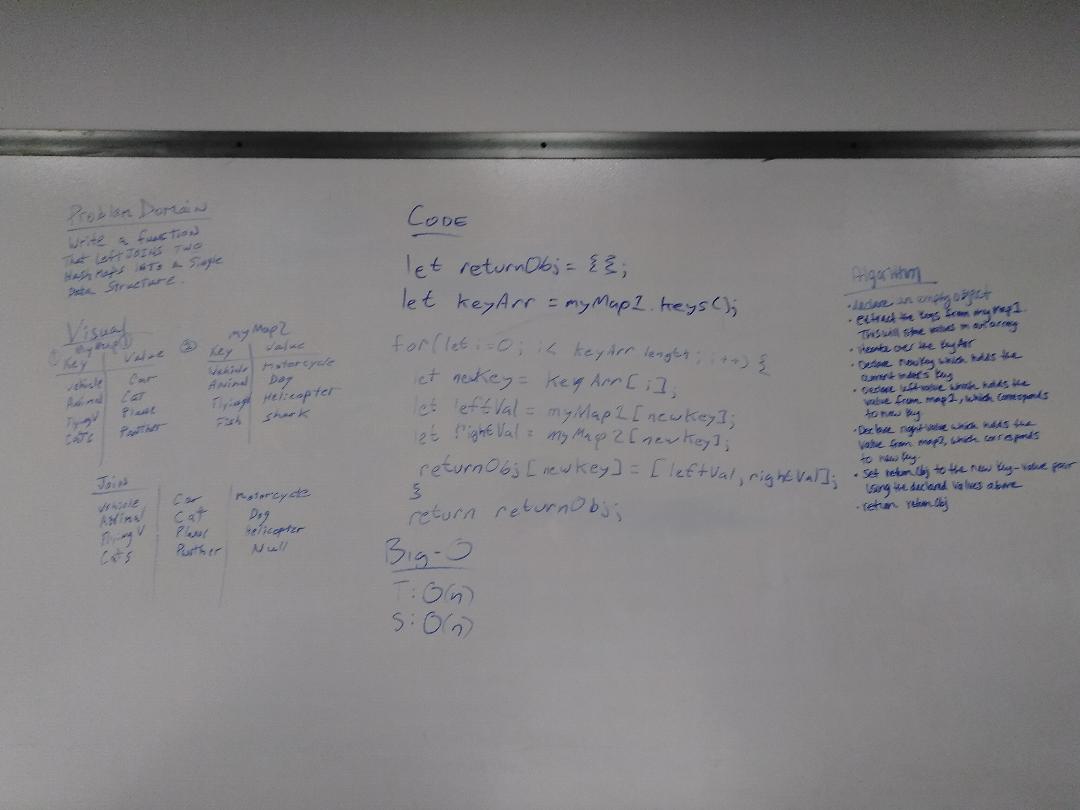 Problem Domain
Write a function
That left Joins Two
Hash maps into a Single
Data Structure.
Visual
① myMap1
Key Value
Vehicle Car
Animal Cat
FlyingV Plane
Cats Panther
② myMap2
Key Value
Vehicle Motorcycle
Animal Dog
Flying Helicopter
Fish Shark
Join
Vehicle Car Motorcycle
Animal Cat Dog
Flying V Plane Helicopter
Cats Panther Null
CODE
let returnObj = {};
let keyArr = myMap1.keys();
for(let i=0; i< keyArr length; i++) {
let newKey = keyArr[i];
let leftVal = myMap1[newKey];
let rightVal = myMap2[newKey];
returnObj[newKey] = [leftVal, rightVal];
}
return returnObj;
Big-O
T: O(n)
S: O(n)
Algorithm
• declare an empty object
• extract the keys from myMap1.
This will store values in an array
• iterate over the keyArr
• Declare newKey which holds the
current index's key
• Declare left value which holds the
value from map1, which corresponds
to new key.
• Declare right value which holds the
value from map2, which corresponds
to new key.
• Set return Obj to the new key-value pair
using the declared values above
• return returnObj